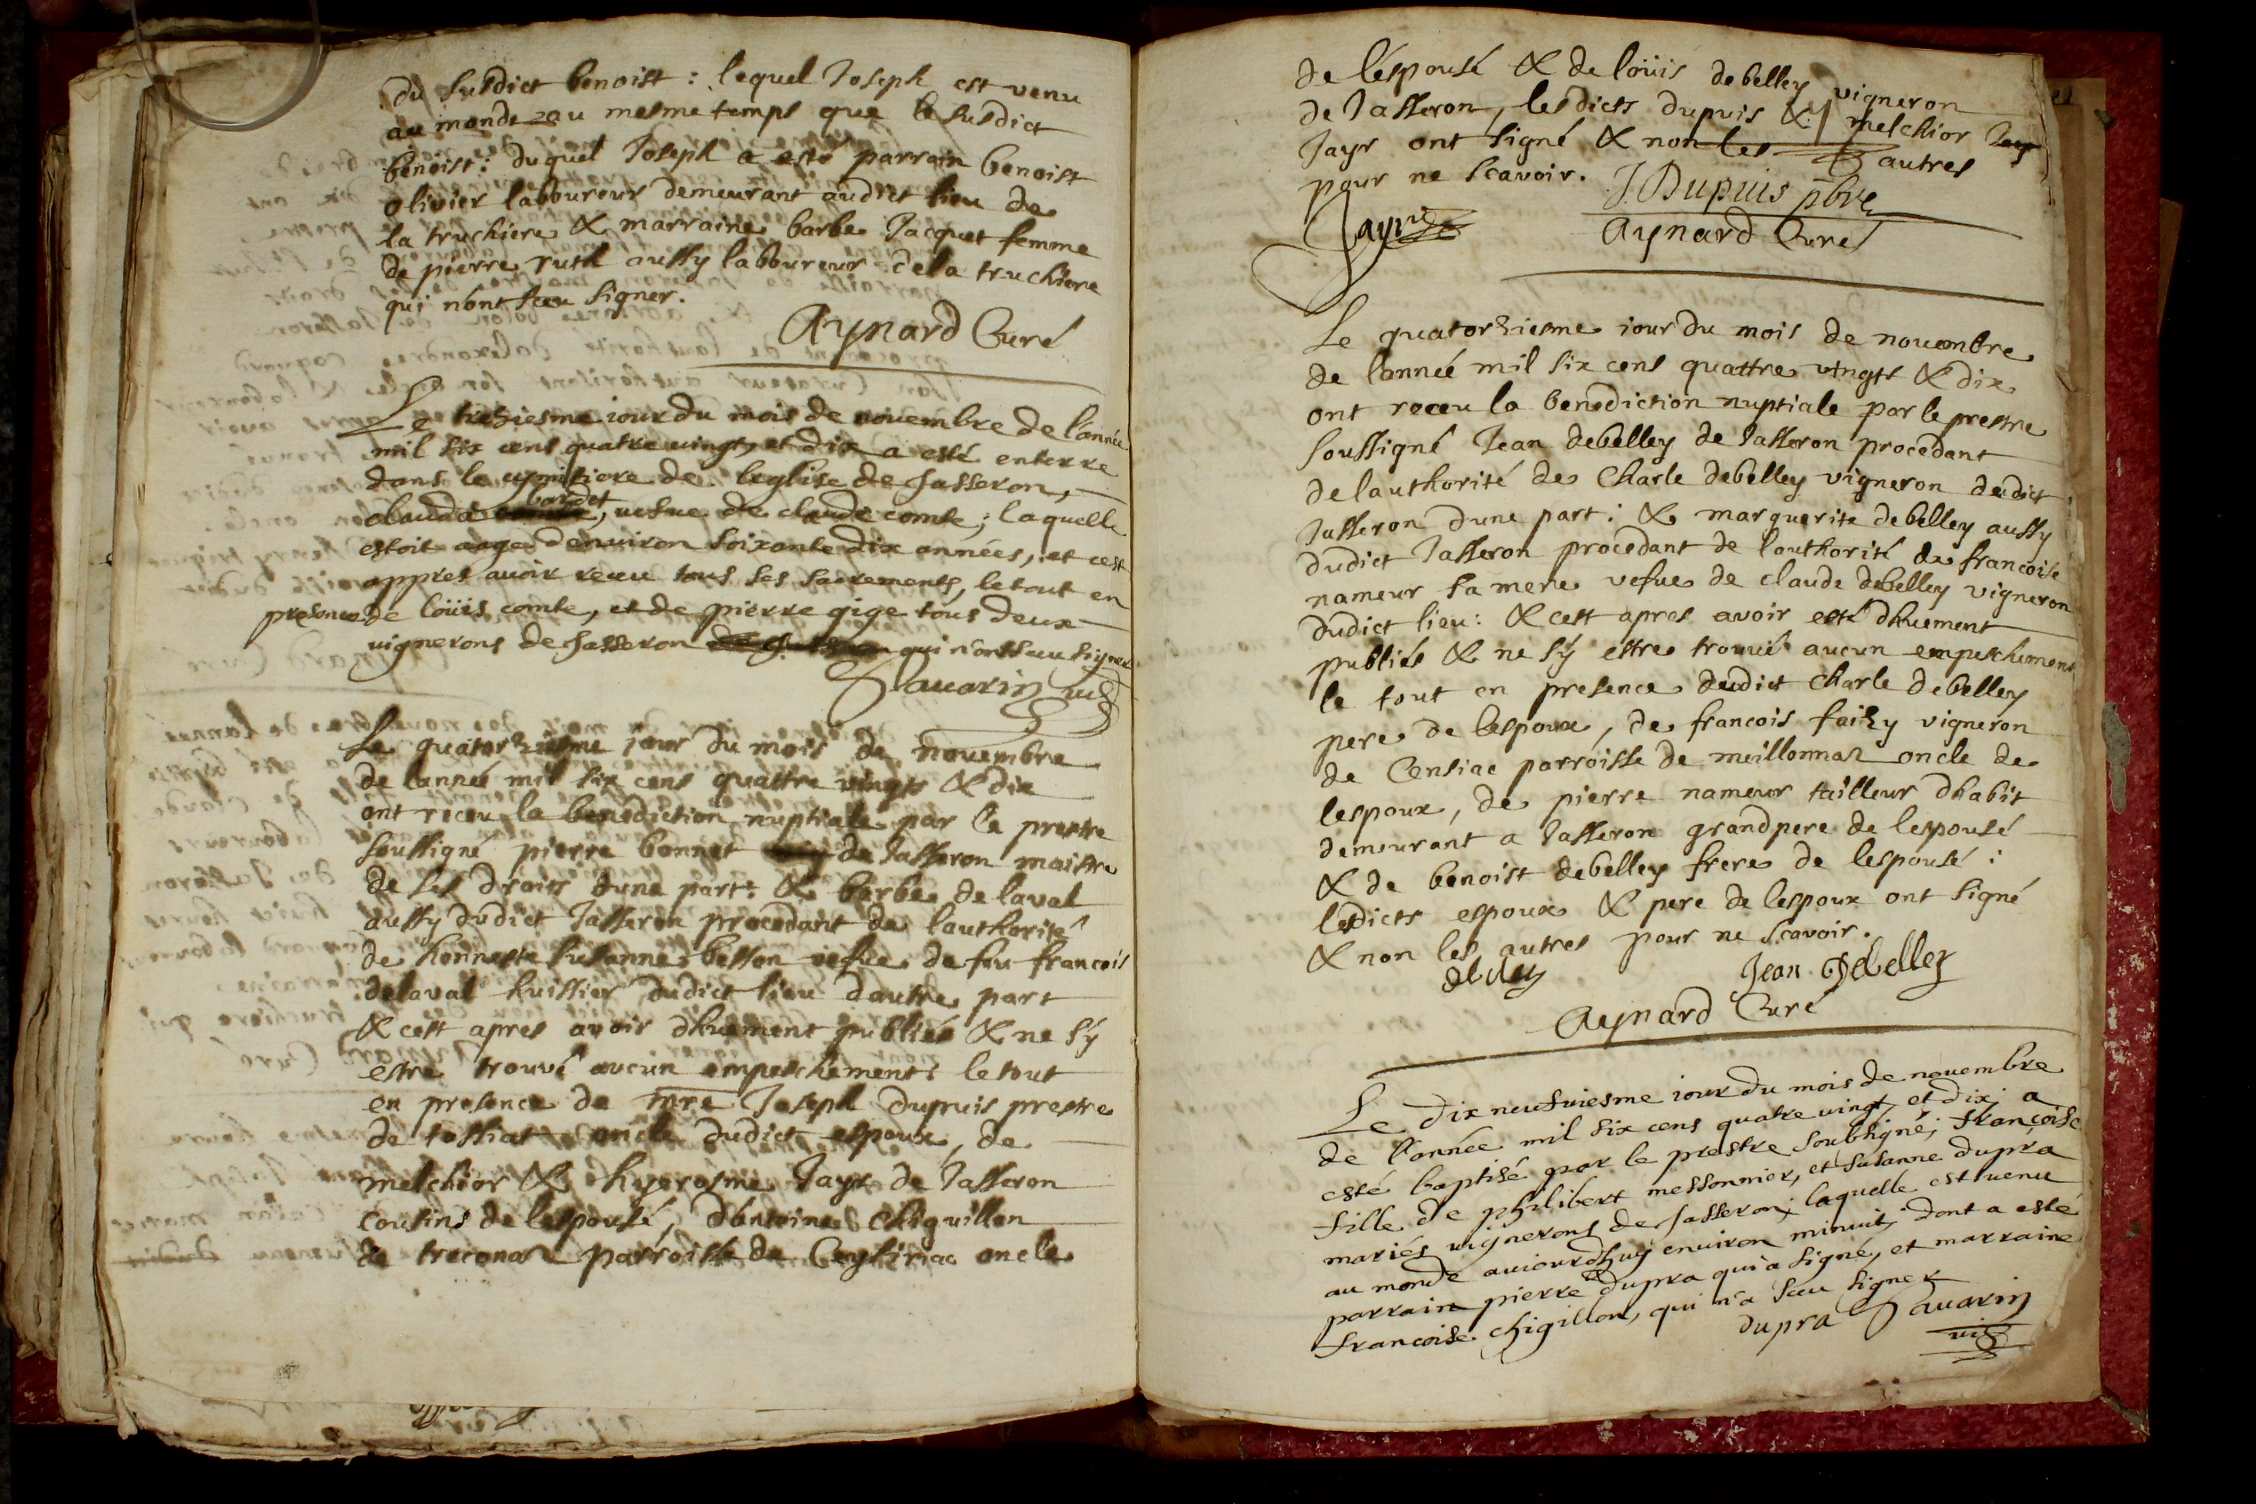 du susdict benoist : lequel Joseph est venu
au monde au mesme temps que le susdict
benoist : duquel Joseph a esté parrain benoist
olivier laboureur demeurant audict lieu de
la truchiere & marraine barbe Jacquet femme
de pierre ruth aussy laboureur de la truchiere
qui n'ont sceu signer.
Aynard Curé
Le treziesme iour du mois de nouembre de l'année
mil six cens quatre uingts et dix a esté enterre
dans le cymitiere de l'eglise de Jasseron,
clauda bardet, uefue de claude comte ; laquelle
estoit aagee d'enuiron soixante dix années, et cest
appres auoir receu tous ses sacrements, le tout en
presence de loüis comte, et de pierre gige tous deux
uignerons de Jasseron qui n'ont sceu signer
Sauarin uic
Le quatorziesme jour du mois de nouembre
de lanneé mil six cens quattre vingts & dix
ont receu la benediction nuptiale par le prestre
soussigné pierre bonnet de Jasseron maistre
de ses droits dune part : & barbe de laval
aussy dudict Jasseron procedant de lauthorité
de honneste susanne besson vefue de feu francois
delaval huissier dudict lieu dautre part
& cest apres avoir dhuement publiés & ne sy
estre trouvé aucun empeschement : le tout
en presence de mre Joseph Dupuis prestre
de tossiat oncle dudict espoux, de
melchior & hyerosme Jayr de Jasseron
cousins de lespousé, d'antoine chiguillon
de treconas parroisse de Ceyseriac oncle
de léspousé & de loüis debelley vigneron
de Jasseron, lesdicts dupuis & melchior Jayr
Jayr ont signé & non les autres
pour ne scavoir.
J. Dupuis pbre
Jayr
Aynard Curé
Le quatorziesme iour du mois de nouembre
de lanneé mil six cens quattre vingts & dix
ont receu la benediction nuptiale par le prestre
soussigné Jean debelley de Jasseron procedant
de lauthorité de Charle debelley vigneron dudict
Jasseron dune part : & marguerite debelley aussy
dudict Jasseron procedant de lauthorité de francoise
nameur sa mere vefue de claude debelley vigneron
dudict lieu : & cest apres avoir esté dhuement
publiés & ne sy estre trouué aucun empeschement
le tout en presence dudict Charle debelley
pere de lespoux, de francois faizy vigneron
de Censiac parroisse de meillonnas oncle de
lespoux, de pierre nameur tailleur dhabit
demeurant a Jasseron grandpere de lespousé
& de benoist debelley frere de lespousé :
lesdicts espoux & pere de lespoux ont signé
& non les autres pour ne scavoir.
Jean Debelley
Aynard Curé
Le dix neufuiesme iour du mois de nouembre
de l'année mil six cens quatre uingt, et dix, a
esté baptisé par le prestre soubsigné ; francoise
fille de philibert messonnier, et susanne dupra
mariés uignerons de Jasseron, laquelle est uenu
au monde auiourdhuy enuiron minuit, dont a esté
parrain pierre dupra qui a signé, et marraine
francoise chigillon, qui n'a sceu signer
dupra Sauarin
uic